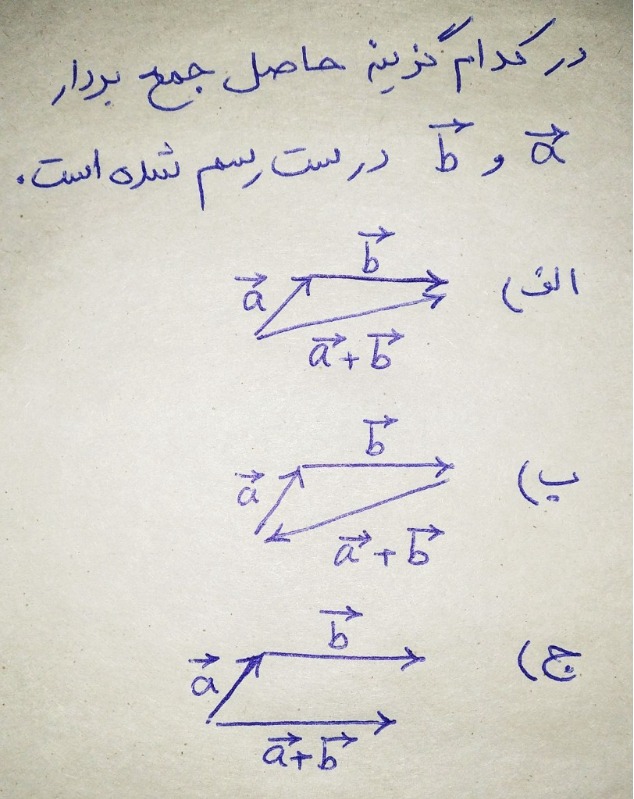 در کدام گزینه حاصل جمع بردار
a⃗ و b⃗ درست رسم شده است.
الف)
b⃗
a⃗
a⃗+b⃗
ب)
b⃗
a⃗
a⃗+b⃗
ج)
b⃗
a⃗
a⃗+b⃗